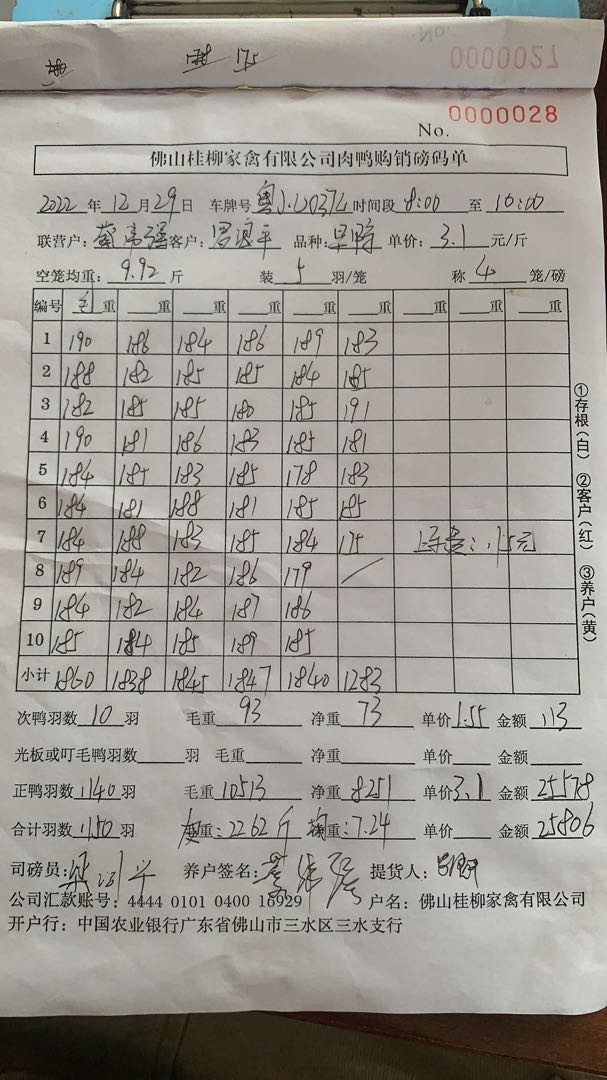 175
No. 0000027
0000028
No.
佛山桂柳家禽有限公司肉鸭购销磅码单
2022 年 12 月 29 日 车牌号 粤 时间段 8:00 至 10:00
联营户: 客户: 品种: 单价: 3.1 元/斤
空笼均重: 9.92 斤 装 5 羽/笼 称 4 笼/磅
编号 毛重 重 重 重 重 重 重 重 重
1 190 186 184 186 189 183
2 188 182 185 185 184 185
3 182 185 185 180 185 191
4 190 181 186 183 185 181
5 184 185 183 185 178 183
6 184 181 188 181 185 185
7 184 188 183 185 184 175 115元
8 189 184 182 186 179
9 184 182 184 187 186
10 185 184 185 189 185
小计 1860 1838 1845 1847 1840 1283
次鸭羽数 10 羽 毛重 93 净重 73 单价 1.55 金额 113
光板或叮毛鸭羽数 羽 毛重 净重 单价 金额
正鸭羽数 1140 羽 毛重 10513 净重 8251 单价 3.1 金额 25578
合计羽数 1150 羽 重:2262斤 重:7.24 金额 25806
司磅员: 养户签名: 提货人:
公司汇款账号: 4444 0101 0400 16929 户名: 佛山桂柳家禽有限公司
开户行: 中国农业银行广东省佛山市三水区三水支行
①存根(白) ②客户(红) ③养户(黄)